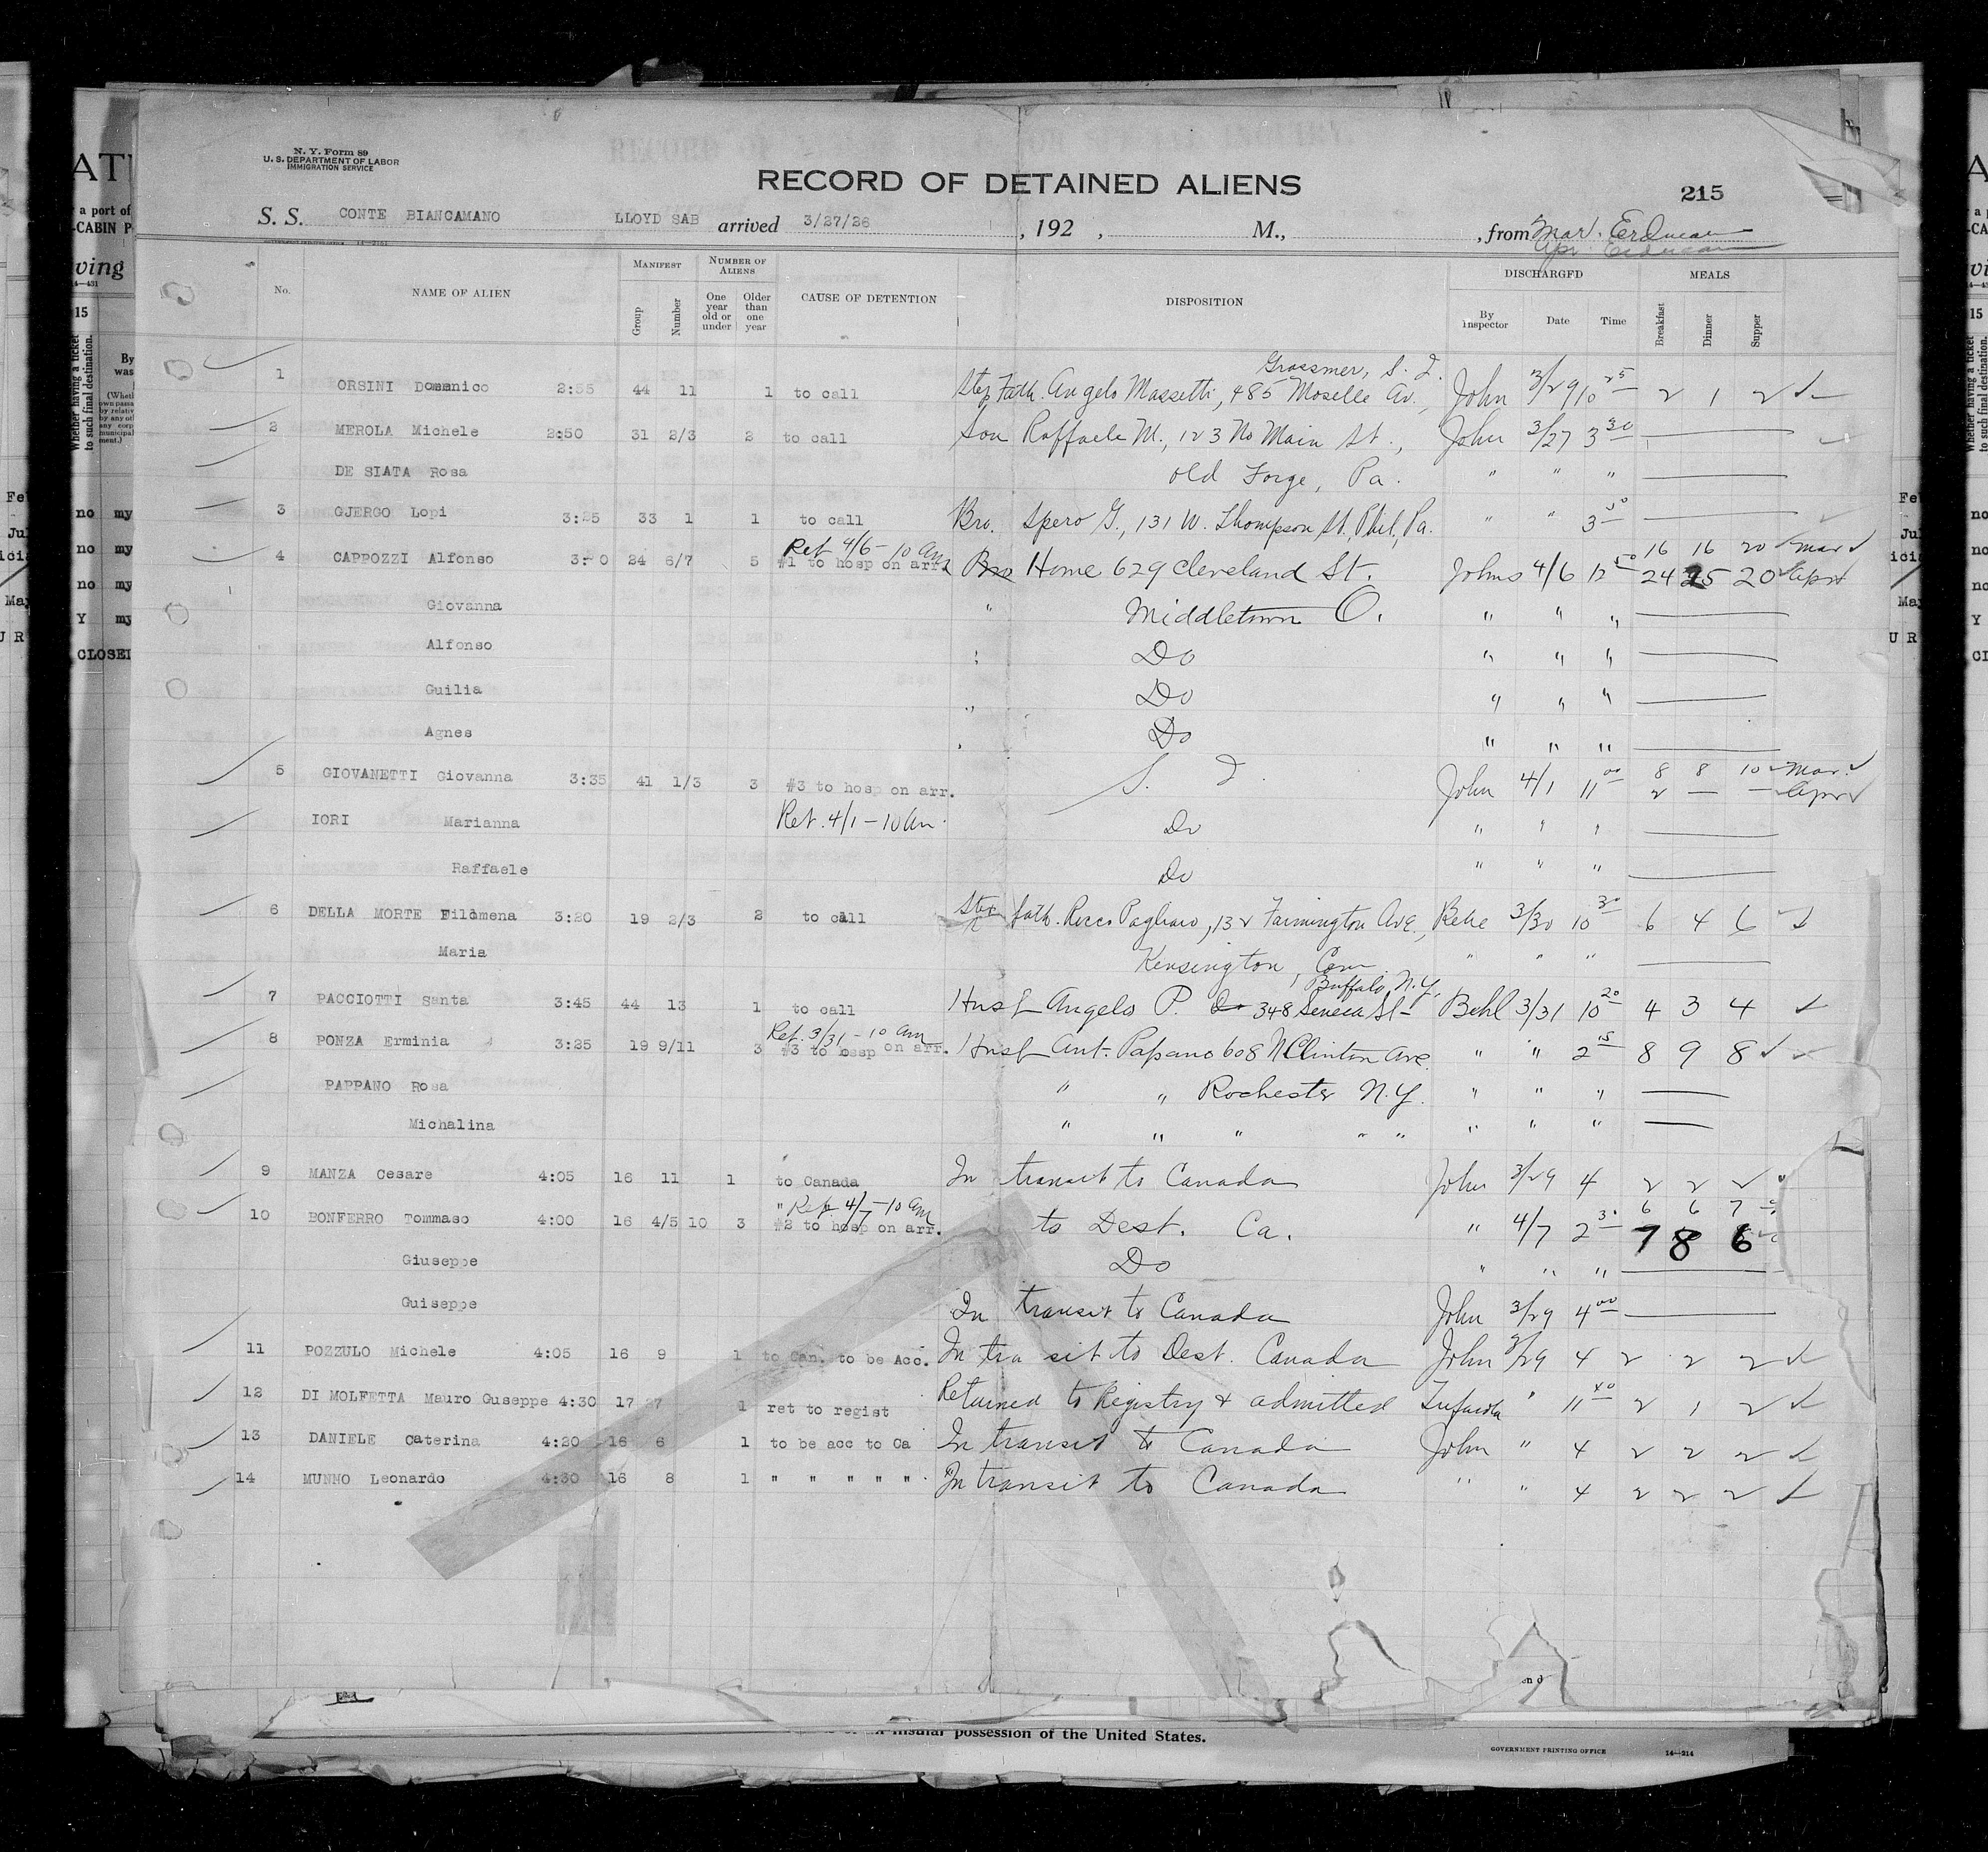 N. Y. Form 89
U. S. DEPARTMENT OF LABOR
IMMIGRATION SERVICE
RECORD OF DETAINED ALIENS
215
S. S. CONTE BIANCAMANO LLOYD SAB arrived 3/27/26, 192 , M., from Mar.
Apr.
No. NAME OF ALIEN MANIFEST NUMBER OF ALIENS CAUSE OF DETENTION DISPOSITION DISCHARGED MEALS
Group Number One year old or under Older than one year By Inspector Date Time Breakfast Dinner Supper
1 ORSINI Domenico 2:55 44 11 1 to call Step Fath. Angelo Massetti, 485 Moselle Av., John 3/29 10 25 2 1 2
2 MEROLA Michele 2:50 31 2/3 2 to call Son Raffaele M., 123 No Main St., John 3/27 3 30
DE SIATA Rosa old Forge, Pa. " " "
3 GJERGO Lopi 3:25 33 1 1 to call Bro. Spero G., 131 W. Thompson St, Phil, Pa. " " 3 50
Ret 4/6 - 10 Am 16 16 20 Mar
4 CAPPOZZI Alfonso 24 6/7 5 #1 to hosp on arr. Bro Home 629 Cleveland St. Johns 4/6 12 50 24 25 20 Apr
Giovanna " Middletown O. " " "
Alfonso " Do " " "
Guilia " Do " " "
Agnes " Do " " "
5 GIOVANETTI Giovanna 3:35 41 1/3 3 #3 to hosp on arr. S. I. John 4/1 11 00 8 8 10 Mar.
2 — — Apr
IORI Marianna Ret. 4/1 - 10 Am. Do " " "
Raffaele Do " " "
6 DELLA MORTE Filomena 3:20 19 2/3 2 to call Step fath. Rocco Pagliaro, 132 Farmington Ave., 3/30 10 30 6 4 6
Maria Kensington, Conn. " " "
Buffalo, N.Y.
7 PACCIOTTI Santa 3:45 44 13 1 to call Husb Angelo P. Do 348 Seneca St- Behl 3/31 10 20 4 3 4
Ret. 3/31 - 10 am
8 PONZA Erminia 3:25 19 9/11 3 #3 to hosp on arr. Husb Ant. Papano 608 N Clinton Ave. " " 2 15 8 9 8
PAPPANO Rosa " " Rochester N.Y. " " "
Michalina " " " " " " " "
9 MANZA Cesare 4:05 16 11 1 to Canada In transit to Canada John 3/29 4 2 2 2
" Ret. 4/7 - 10 am 6 6 7
10 BONFERRO Tommaso 4:00 16 4/5 10 3 #2 to hosp on arr. to Dest. Ca. " 4/7 2 30 7 8 6
Giuseppe Do " " "
Guiseppe In transit to Canada John 3/29 4 00
11 POZZULO Michele 4:05 16 9 1 to Can. to be Acc. In tra sit to Dest. Canada John 3/29 4 2 2 2
12 DI MOLFETTA Mauro Guseppe 4:30 17 27 1 ret to regist Returned to Registry & admitted " 11 40 2 1 2
13 DANIELE Caterina 4:20 16 6 1 to be acc to Ca In transit to Canada John " 4 2 2 2
14 MUNNO Leonardo 4:30 16 8 1 " " " " " In transit to Canada " " 4 2 2 2
insular possession of the United States.
GOVERNMENT PRINTING OFFICE 14—214